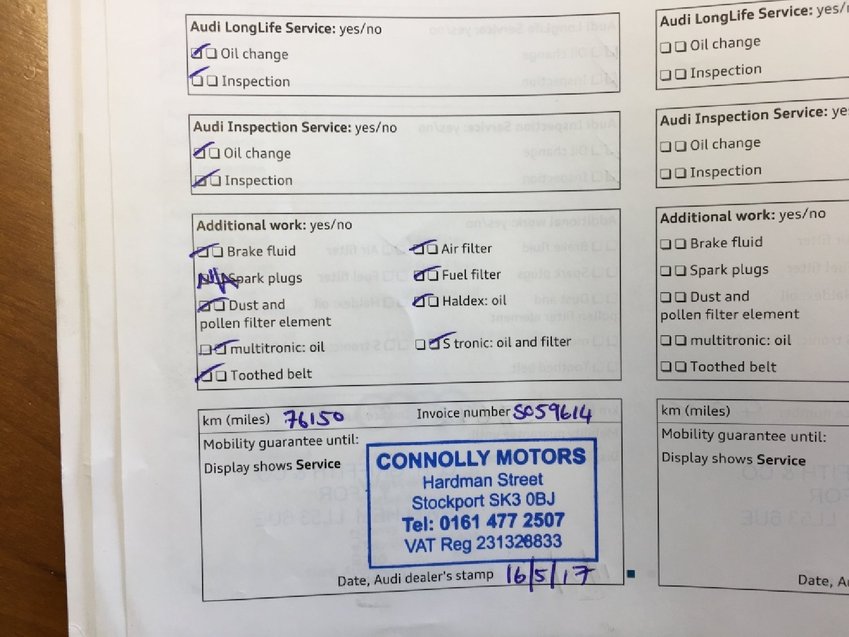 Audi LongLife Service: yes/no
Oil change
Inspection
Audi Inspection Service: yes/no
Oil change
Inspection
Additional work: yes/no
Brake fluid
Air filter
N/A Spark plugs
Fuel filter
Dust and
pollen filter element
Haldex: oil
multitronic: oil
S tronic: oil and filter
Toothed belt
km (miles) 76150 Invoice number SO59614
Mobility guarantee until:
Display shows Service
CONNOLLY MOTORS
Hardman Street
Stockport SK3 0BJ
Tel: 0161 477 2507
VAT Reg 231328833
Date, Audi dealer's stamp 16/5/17
Audi LongLife Service: yes/
Oil change
Inspection
Audi Inspection Service: ye
Oil change
Inspection
Additional work: yes/no
Brake fluid
Spark plugs
Dust and
pollen filter element
multitronic: oil
Toothed belt
km (miles)
Mobility guarantee until:
Display shows Service
Date, A